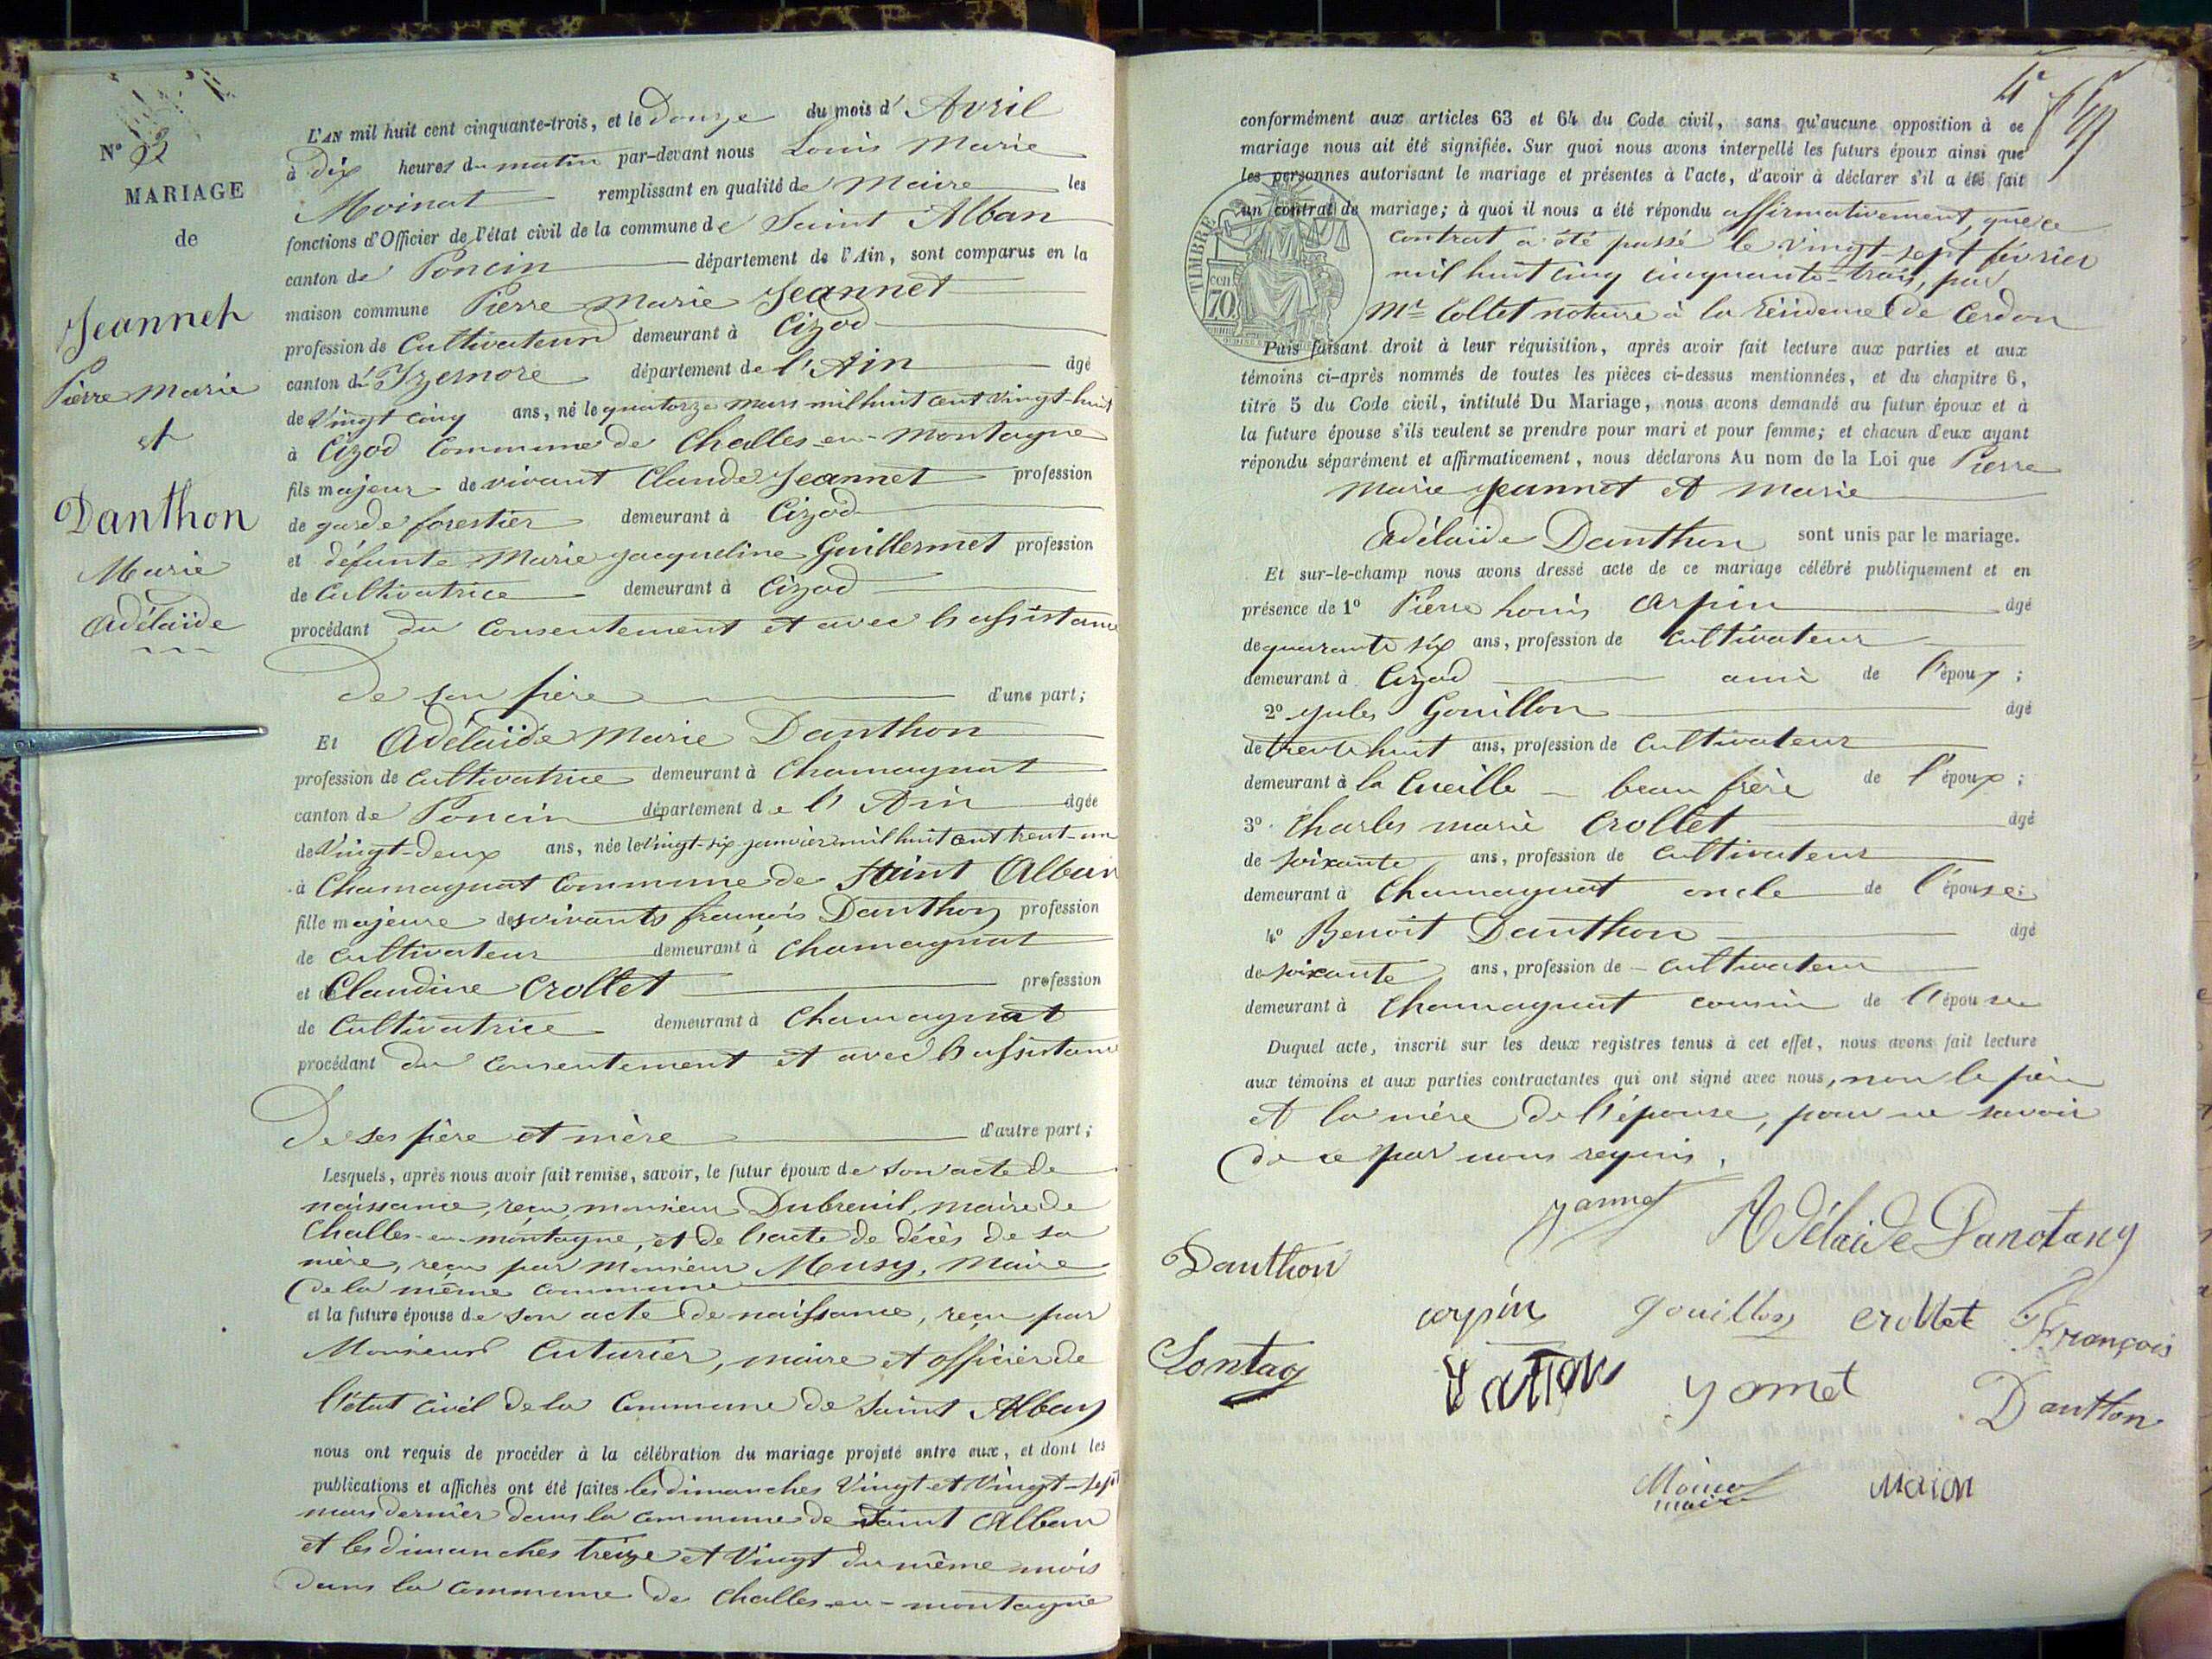 N° 2
MARIAGE
de
Jeannet
Pierre Marie
et
Danthon
Marie
Adélaïde
L'AN mil huit cent cinquante-trois, et le Douze du mois d' Avril
à dix heures du matin par-devant nous Louis Marie
Moinat remplissant en qualité de Maire les
fonctions d'Officier de l'état civil de la commune de Saint Alban
canton de Poncin département de l'Ain, sont comparus en la
maison commune Pierre Marie Jeannet
profession de Cultivateur demeurant à Cizod
canton d' Izernore département de l'Ain âgé
de Vingt cinq ans, né le quatorze mars mil huit cent vingt-huit
à Cizod Commune de Challes-en-Montagne
fils majeur de vivant Claude Jeannet profession
de garde forestier demeurant à Cizod
et défunte Marie Jacqueline Guillermet profession
de Cultivatrice demeurant à Cizod
procédant du consentement et avec l'assistance
De son père d'une part;
Et Adélaïde Marie Danthon
profession de Cultivatrice demeurant à Chamagnat
canton de Poncin département de l'Ain âgée
de Vingt-deux ans, née le Vingt-six janvier mil huit cent trent-un
à Chamagnat Commune de Saint Alban
fille majeure des vivants françois Danthon profession
de Cultivateur demeurant à Chamagnat
et Claudine Crollet profession
de Cultivatrice demeurant à Chamagnat
procédant du consentement et avec l'assistance
De ses père et mère d'autre part;
Lesquels, après nous avoir fait remise, savoir, le futur époux de son acte de
naissance, reçu, monsieur Dubreuil, maire de
Challes-en-montagne, et de l'acte de décès de sa
mère, reçu par Monsieur Musy, Maire
De la même commune
et la future épouse de son acte de naissance, reçu par
Monsieur Cuturier, maire et officier de
l'état civil de la Commune de Saint Alban
nous ont requis de procéder à la célébration du mariage projeté entre eux, et dont les
publications et affiches ont été faites les dimanches Vingt et Vingt-sept
mars dernier dans la commune de Saint Alban
et les dimanches treize et Vingt du même mois
dans la Commune de Challes-en-montagne
4e
conformément aux articles 63 et 64 du Code civil, sans qu'aucune opposition à ce
mariage nous ait été signifiée. Sur quoi nous avons interpellé les futurs époux ainsi que
les personnes autorisant le mariage et présentes à l'acte, d'avoir à déclarer s'il a été fait
un contrat de mariage; à quoi il nous a été répondu affirmativement, que ce
contrat a été passé le vingt-sept février
mil huit cinq cinquante-trois, par
Me Collet notaire à la résidence de Cerdon
TIMBRE
cen
70
Puis faisant droit à leur réquisition, après avoir fait lecture aux parties et aux
témoins ci-après nommés de toutes les pièces ci-dessus mentionnées, et du chapitre 6,
titre 5 du Code civil, intitulé Du Mariage, nous avons demandé au futur époux et à
la future épouse s'ils veulent se prendre pour mari et pour femme; et chacun d'eux ayant
répondu séparément et affirmativement, nous déclarons Au nom de la Loi que Pierre
Marie Jeannet et Marie
Adélaïde Danthon sont unis par le mariage.
Et sur-le-champ nous avons dressé acte de ce mariage célébré publiquement et en
présence de 1° Pierre Louis Arpin âgé
de quarante six ans, profession de Cultivateur
demeurant à Cizod ami de l'époux;
2° Jules Gouillon âgé
de trente huit ans, profession de Cultivateur
demeurant à la Cueille beau frère de l'époux;
3° Charles Marie Crollet âgé
de soixante ans, profession de Cultivateur
demeurant à Chamagnat oncle de l'épouse;
4° Benoit Danthon âgé
de soixante ans, profession de Cultivateur
demeurant à Chamagnat cousin de l'épouse
Duquel acte, inscrit sur les deux registres tenus à cet effet, nous avons fait lecture
aux témoins et aux parties contractantes qui ont signé avec nous, non le père
et la mère de l'épouse, pour ne savoir
De ce par nous requis.
yannet Adélaide
Danthon
arpin gouillon crollet François
Sontag yamet Danthon
Moinat
maire